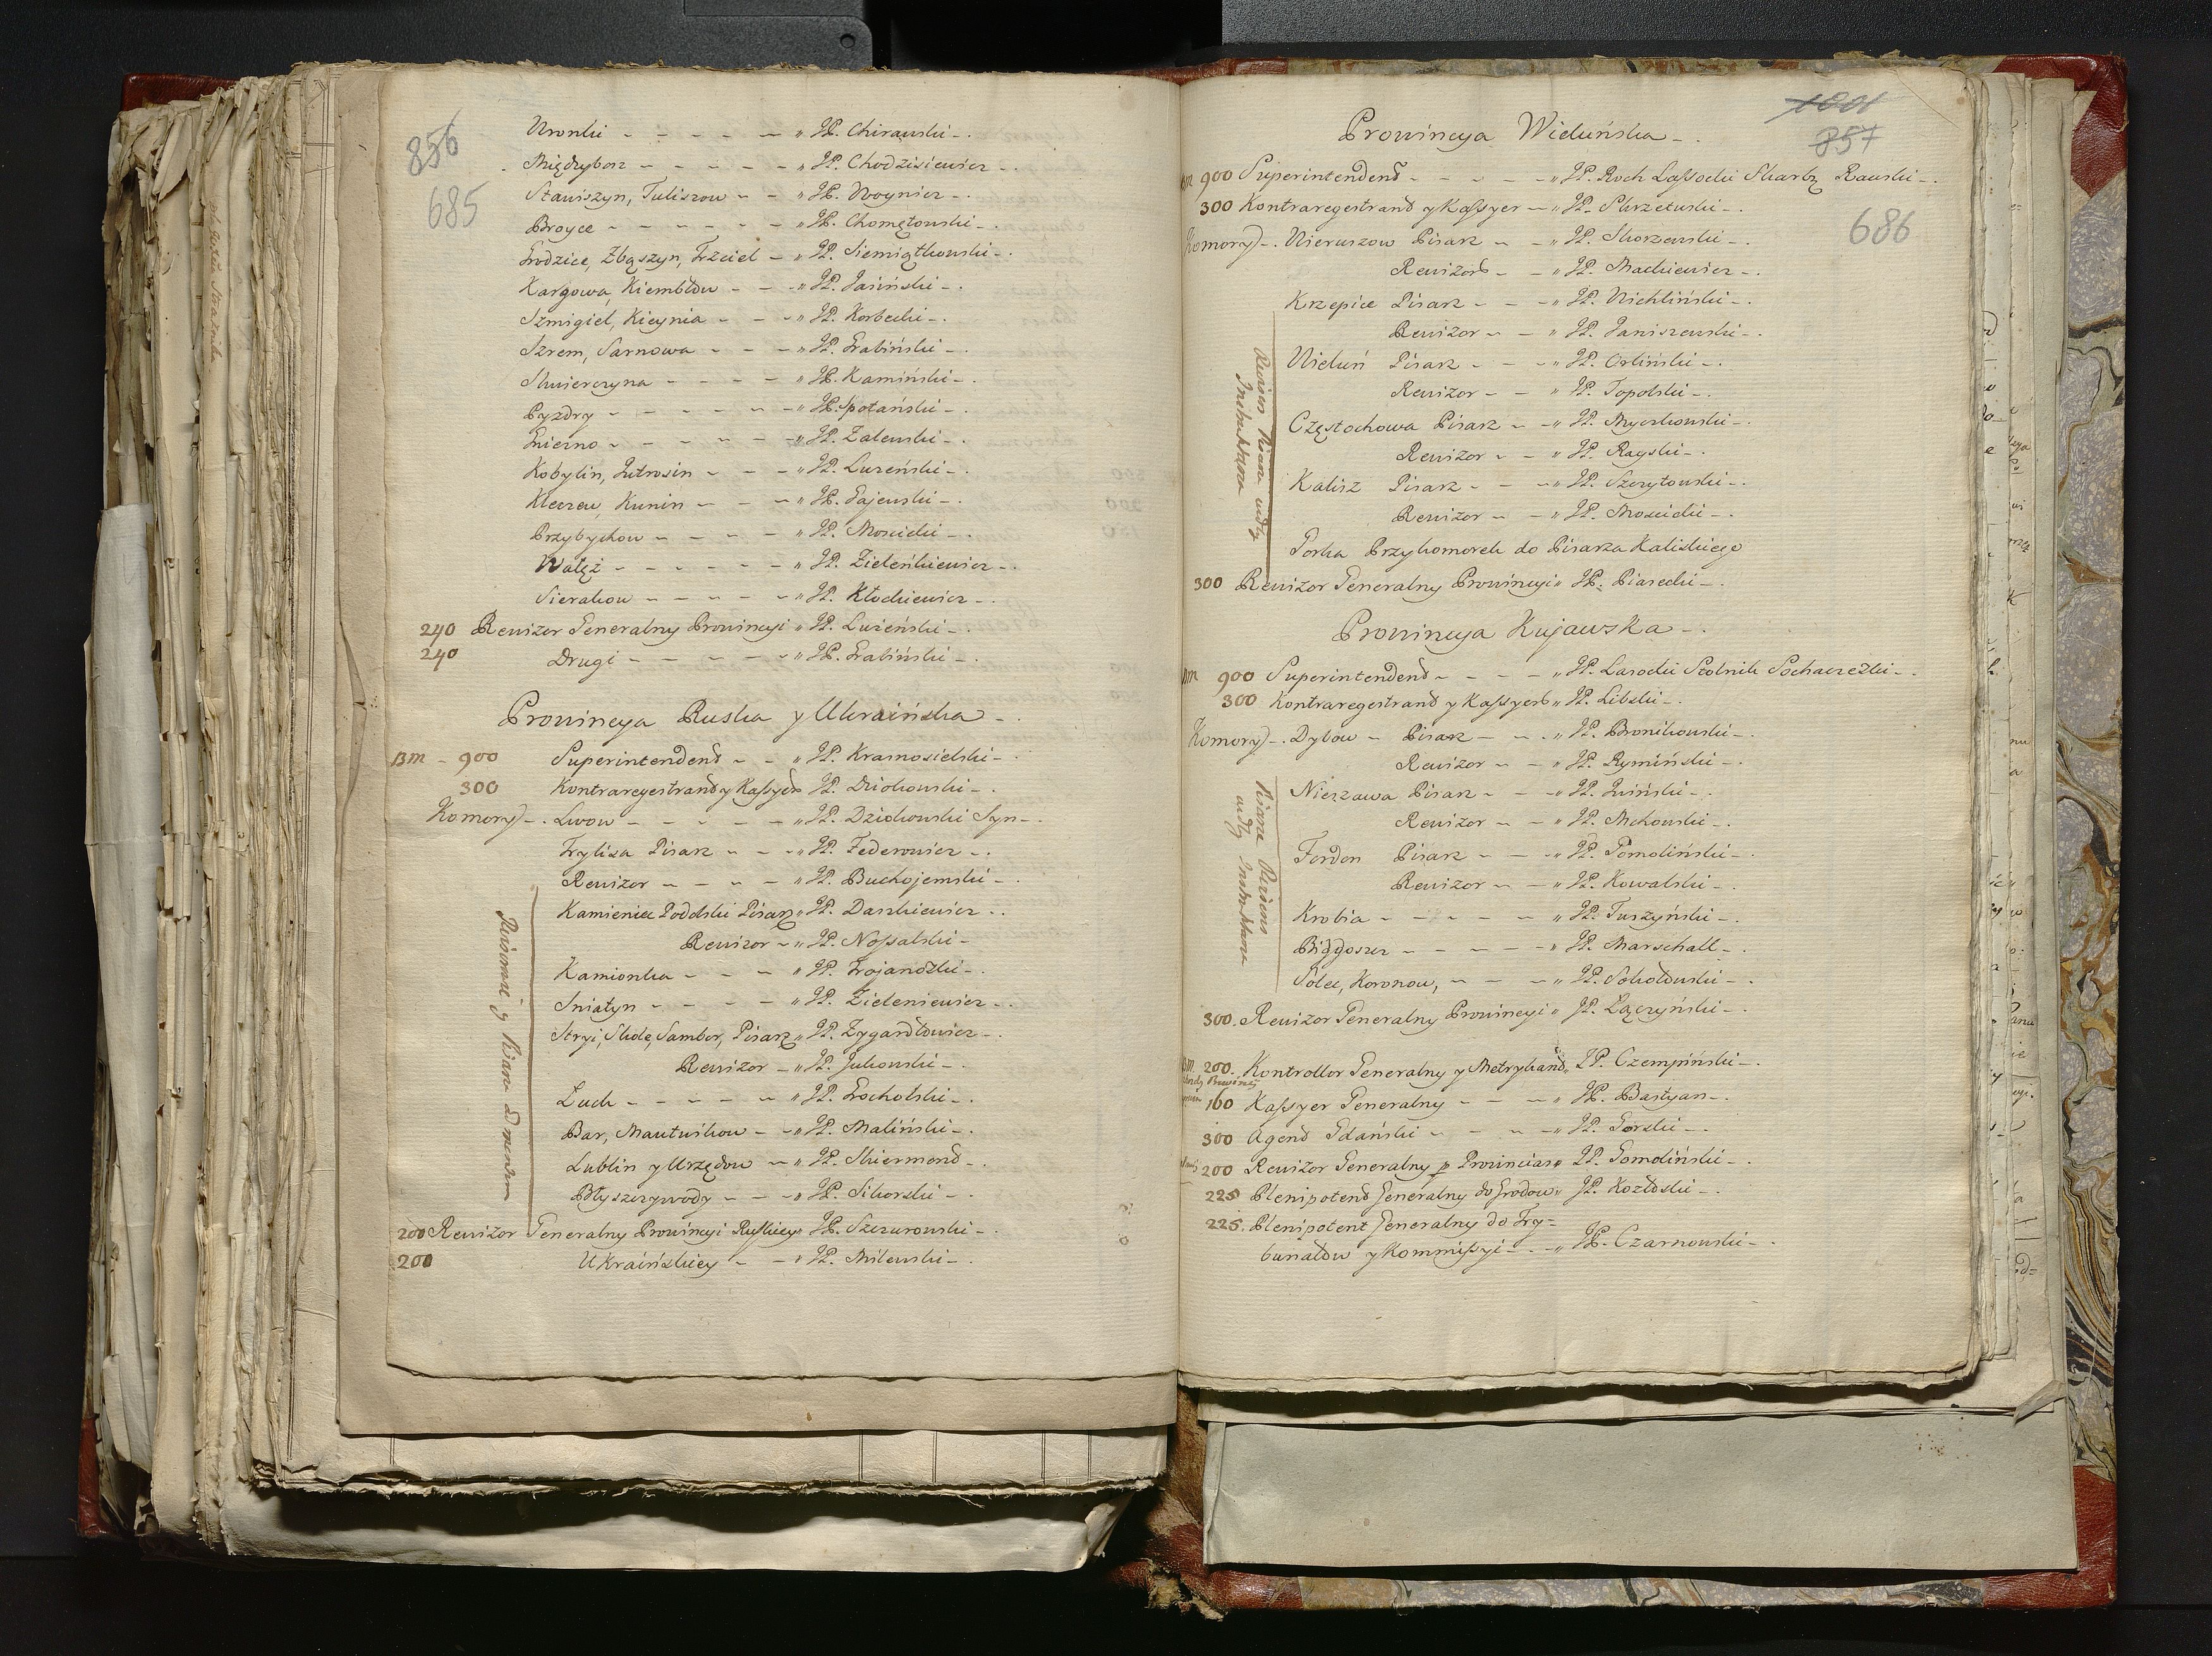 856
685
Wronki - - - - - " JP. Chirawski -.
Międzyborz - - - - - " JP. Chodzisiewicz -.
Stawiszyn, Tuliszow - - " JP. Woynicz -.
Broyce - - - - - - " JP. Chomętowski -.
Grodzice, Zbąszyn, Trzciel - " JP. Siemiątkowski -.
Kargowa, Kiembłow - - - " JP. Jasiński -.
Szmigiel, Kicynia - - - " JP. Korbecki -.
Szrem, Sarnowa - - - " JP. Grabiński -.
Skwierczyna - - - - " JP. Kamiński -.
Pyzdry - - - - - - " JP. Spotański -.
Gniezno - - - - - - " JP. Zalewski -.
Kobylin, Jutrosin - - - " JP. Luzeński -.
Kleczew, Kunin - - - " JP. Gajewski -.
Przybychow - - - - " JP. Moscicki -.
Wałęź - - - - - - " JP. Zieleńkiewicz -.
Sierakow - - - - - " JP. Kłockiewicz -.
240 Rewizor Generalny Prowincyi " JP. Luzeński -.
240 Drugi - - - - - " JP. Grabiński -.
Prowincya Ruska y Ukraińska -.
Bm - 900 Superintendend - - " JP. Krasnosielski -.
300 Kontraregestrand y Kassyer " JP. Dzickowski -.
Komory -. Lwow - - - - - " JP. Dzickowski Syn -.
Tryliza Pisarz - - - " JP. Federowicz -.
Rewizor - - - - " JP. Buchojemski -.
Kamieniec Podolski Pisarz " JP. Daszkiewicz -.
Rewizor - " JP. Nossalski -
Kamionka - - - - " JP. Trojandzki -.
Sniatyn - - - - - " JP. Zieleniewicz -.
Stryi, Skole, Sambor, Pisarz " JP. Zygardłowicz -.
Rewizor - " JP. Jukowski -.
Luck - - - - - " JP. Grocholski -.
Bar, - - " JP. Maliński -.
Lublin y Urzędow - " JP. Skiermond -.
Błyszczywody - - - " JP. Sikorski -.
200 Rewizor Generalny Prowincyi Ruskiey " JP. Szczurowski -.
200 Ukraińskiey - - " JP. Milewski -.
1001
857
686
Prowincya Wieluńska -.
Bm 900 Superintendend - - - - " JP. Roch Lassocki Skarbz Rawski -.
300 Kontraregestrand y Kassyer - " JP. Skrzetuski -.
Komory -. Wieruszow Pisarz - - " JP. Skorzewski -.
Rewizor - - " JP. Mackiewicz -.
Krzepice Pisarz - - - " JP. Wichliński -.
Rewizor - - " JP. Janiszewski -.
Wieluń Pisarz - - - " JP. Orliński -.
Rewizor - - " JP. Topolski -.
Częstochowa Pisarz - - " JP. Myszkowski -.
Rewizor - - " JP. Rayski -.
Kalisz Pisarz - - - " JP. Szczytowski -.
Rewizor - - " JP. Moscicki -.
Porka Przykomorek do Pisarza Kaliskiego
300 Rewizor Generalny Prowincyi " JP. Piasecki -.
Prowincya Kujawska -.
Bm 900 Superintendend - - - - " JP. Lasocki Stolnik Sochaczezki -.
300 Kontraregestrand y Kassyer " JP. Libski -.
Komory -. Dybow - Pisarz - - " JP. Bronikowski -.
Rewizor - - " JP. Rymiński -.
Nieszawa Pisarz - - - " JP. -.
Rewizor - - " JP. Mchowski -.
Fordon Pisarz - - - " JP. Pomoliński -.
Rewizor - - " JP. Kowalski -.
Krobia - - - - - " JP. Tuszyński -.
Bidgoszcz - - - - - " JP. Marschall -.
Solec, Koronow, - - - " JP. Sokołowski -.
300. Rewizor Generalny Prowincyi " JP. Łączyński -.
Bm. 200. Kontrollor Generalny y Metrykand " JP. Czempiński -.
160 Kassyer Generalny - - - " JP. Bastyan -.
300 Agend Gdański - - - " JP. Gorski -.
200 Rewizor Generalny p Provincias " JP. Gomoliński -.
225 Plenipotend Generalny do Grodow " JP. Kozłoski -.
225. Plenipotent Generalny do Try=
bunałow y Kommissyi - - " JP. Czarnowski -.